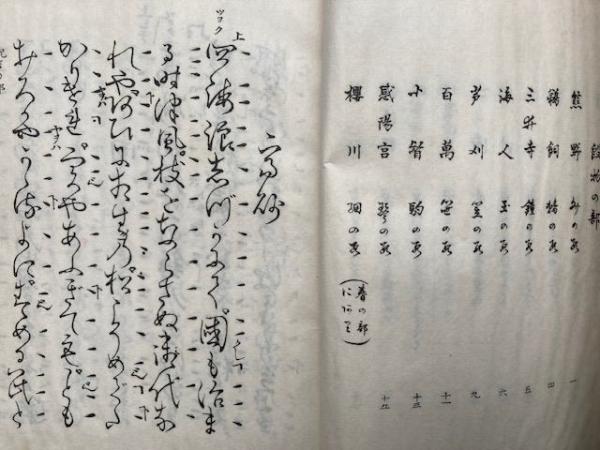 段物の部
熊野 文の段 一
鵜飼 鵜の段 四
三井寺 鐘の段 五
海人 玉の段 六
芦刈 笠の段 九
百萬 笹の段 十一
小督 駒の段 十三
咸陽宮 琴の段 十五
櫻川 網の段 (春の部にあり)
高砂
上
ツヨク
四海浪志づかにて國も治ま
る時津風枝をならさぬ御代な
れやあひに相生の松こそめでた
かりけれげにやあふぎてもことも
おろかやかゝるよにすめる民と